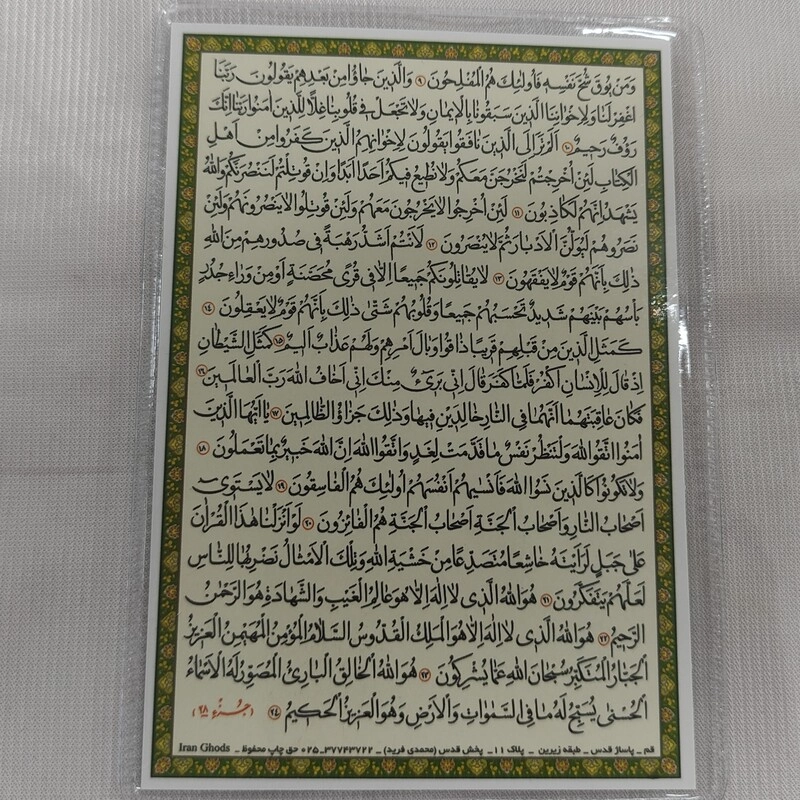 وَمَنْ يُوقَ شُحَّ نَفْسِهِ فَأُولٰئِكَ هُمُ الْمُفْلِحُونَ ۹ وَالَّذِينَ جَاؤُا مِنْ بَعْدِهِمْ يَقُولُونَ رَبَّنَا
اغْفِرْ لَنَا وَلِإِخْوَانِنَا الَّذِينَ سَبَقُونَا بِالْإِيمَانِ وَلَا تَجْعَلْ فِي قُلُوبِنَا غِلًّا لِلَّذِينَ اٰمَنُوا رَبَّنَا إِنَّكَ
رَؤُفٌ رَحِيمٌ ۱۰ أَلَمْ تَرَ إِلَى الَّذِينَ نَافَقُوا يَقُولُونَ لِإِخْوَانِهِمُ الَّذِينَ كَفَرُوا مِنْ أَهْلِ
الْكِتَابِ لَئِنْ أُخْرِجْتُمْ لَنَخْرُجَنَّ مَعَكُمْ وَلَا نُطِيعُ فِيكُمْ أَحَدًا أَبَدًا وَإِنْ قُوتِلْتُمْ لَنَنْصُرَنَّكُمْ وَاللّٰهُ
يَشْهَدُ إِنَّهُمْ لَكَاذِبُونَ ۱۱ لَئِنْ أُخْرِجُوا لَا يَخْرُجُونَ مَعَهُمْ وَلَئِنْ قُوتِلُوا لَا يَنْصُرُونَهُمْ وَلَئِنْ
نَصَرُوهُمْ لَيُوَلُّنَّ الْأَدْبَارَ ثُمَّ لَا يُنْصَرُونَ ۱۲ لَأَنْتُمْ أَشَدُّ رَهْبَةً فِي صُدُورِهِمْ مِنَ اللّٰهِ
ذٰلِكَ بِأَنَّهُمْ قَوْمٌ لَا يَفْقَهُونَ ۱۳ لَا يُقَاتِلُونَكُمْ جَمِيعًا إِلَّا فِي قُرًى مُحَصَّنَةٍ أَوْ مِنْ وَرَاءِ جُدُرٍ
بَأْسُهُمْ بَيْنَهُمْ شَدِيدٌ تَحْسَبُهُمْ جَمِيعًا وَقُلُوبُهُمْ شَتّٰى ذٰلِكَ بِأَنَّهُمْ قَوْمٌ لَا يَعْقِلُونَ ۱۴
كَمَثَلِ الَّذِينَ مِنْ قَبْلِهِمْ قَرِيبًا ذَاقُوا وَبَالَ أَمْرِهِمْ وَلَهُمْ عَذَابٌ أَلِيمٌ ۱۵ كَمَثَلِ الشَّيْطَانِ
إِذْ قَالَ لِلْإِنْسَانِ اكْفُرْ فَلَمَّا كَفَرَ قَالَ إِنِّي بَرِيءٌ مِنْكَ إِنِّي أَخَافُ اللّٰهَ رَبَّ الْعَالَمِينَ ۱۶
فَكَانَ عَاقِبَتَهُمَا أَنَّهُمَا فِي النَّارِ خَالِدَيْنِ فِيهَا وَذٰلِكَ جَزَاؤُ الظَّالِمِينَ ۱۷ يَا أَيُّهَا الَّذِينَ
اٰمَنُوا اتَّقُوا اللّٰهَ وَلْتَنْظُرْ نَفْسٌ مَا قَدَّمَتْ لِغَدٍ وَاتَّقُوا اللّٰهَ إِنَّ اللّٰهَ خَبِيرٌ بِمَا تَعْمَلُونَ ۱۸
وَلَا تَكُونُوا كَالَّذِينَ نَسُوا اللّٰهَ فَأَنْسٰيهُمْ أَنْفُسَهُمْ أُولٰئِكَ هُمُ الْفَاسِقُونَ ۱۹ لَا يَسْتَوِي
أَصْحَابُ النَّارِ وَأَصْحَابُ الْجَنَّةِ أَصْحَابُ الْجَنَّةِ هُمُ الْفَائِزُونَ ۲۰ لَوْ أَنْزَلْنَا هٰذَا الْقُرْاٰنَ
عَلٰى جَبَلٍ لَرَأَيْتَهُ خَاشِعًا مُتَصَدِّعًا مِنْ خَشْيَةِ اللّٰهِ وَتِلْكَ الْأَمْثَالُ نَضْرِبُهَا لِلنَّاسِ
لَعَلَّهُمْ يَتَفَكَّرُونَ ۲۱ هُوَ اللّٰهُ الَّذِي لَا إِلٰهَ إِلَّا هُوَ عَالِمُ الْغَيْبِ وَالشَّهَادَةِ هُوَ الرَّحْمٰنُ
الرَّحِيمُ ۲۲ هُوَ اللّٰهُ الَّذِي لَا إِلٰهَ إِلَّا هُوَ الْمَلِكُ الْقُدُّوسُ السَّلَامُ الْمُؤْمِنُ الْمُهَيْمِنُ الْعَزِيزُ
الْجَبَّارُ الْمُتَكَبِّرُ سُبْحَانَ اللّٰهِ عَمَّا يُشْرِكُونَ ۲۳ هُوَ اللّٰهُ الْخَالِقُ الْبَارِئُ الْمُصَوِّرُ لَهُ الْأَسْمَاءُ
الْحُسْنٰى يُسَبِّحُ لَهُ مَا فِي السَّمٰوَاتِ وَالْأَرْضِ وَهُوَ الْعَزِيزُ الْحَكِيمُ ۲۴ (جزء ۲۸)
قم _ پاساژ قدس _ طبقه زیرین _ پلاک ۱۱ _ پخش قدس (محمدی فرید) _ ۳۷۷۴۳۷۲۲_۰۲۵ حق چاپ محفوظ _ Iran Ghods